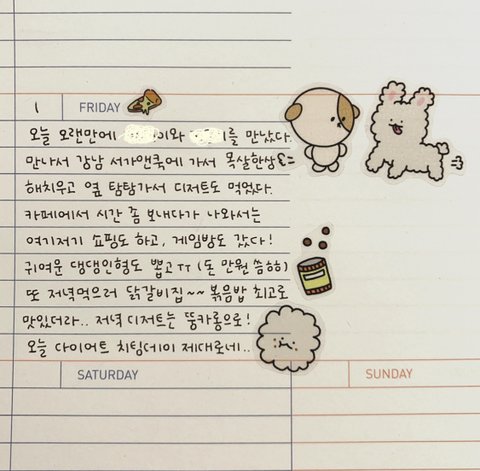 1 FRIDAY
오늘 오랜만에 이와 를 만났다.
만나서 강남 서가앤쿡에 가서 목살한상을
해치우고 옆 탐탐가서 디저트도 먹었다.
카페에서 시간 좀 보내다가 나와서는
여기저기 쇼핑도 하고, 게임방도 갔다!
귀여운 댕댕인형도 뽑고ㅠㅠ (돈 만원 씀ㅎㅎ)
또 저녁먹으러 닭갈비집~~ 볶음밥 최고로
맛있더라.. 저녁 디저트는 뚱카롱으로!
오늘 다이어트 치팅데이 제대로네..
SATURDAY
SUNDAY